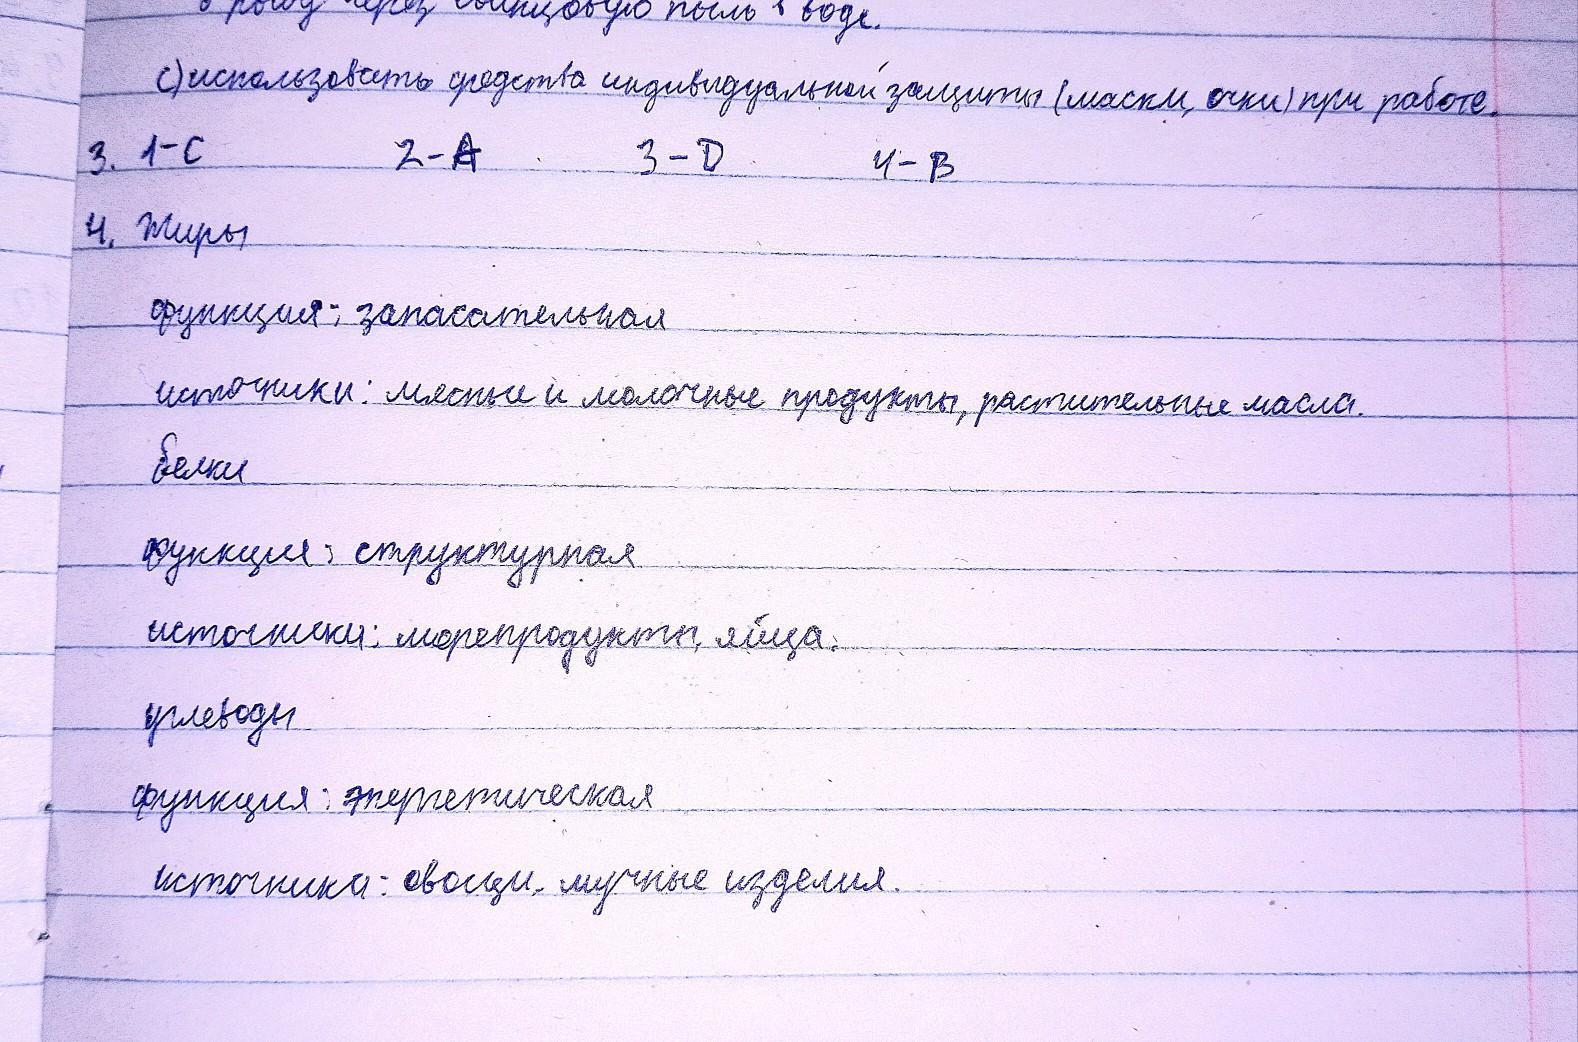 рыбу через свинцовую пыль в воде.
с) использовать средства индивидуальной защиты (маски, очки) при работе.
3. 1-C 2-A 3-D 4-B
4. Жиры
функция: запасательная
источники: мясные и молочные продукты, растительные масла.
белки
функция: структурная
источники: морепродукты, яйца.
углеводы
функция: энергетическая
источника: овощи, мучные изделия.